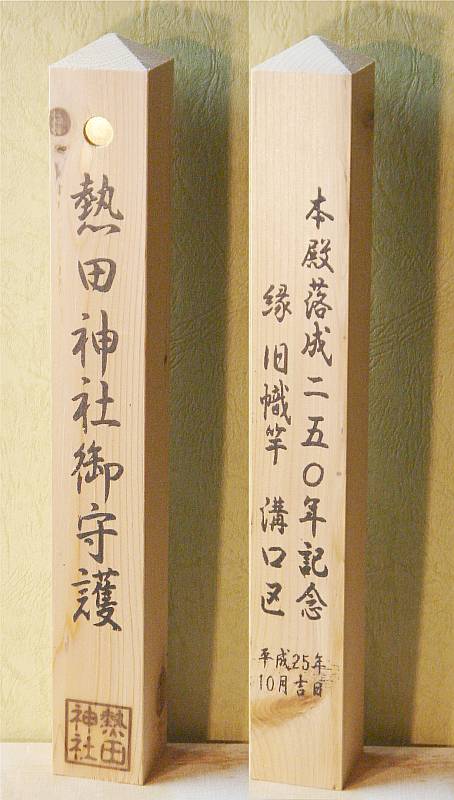 熱田神社御守護
熱田
神社
本殿落成二五〇年記念
縁 旧幟竿 溝口区
平成25年
10月吉日